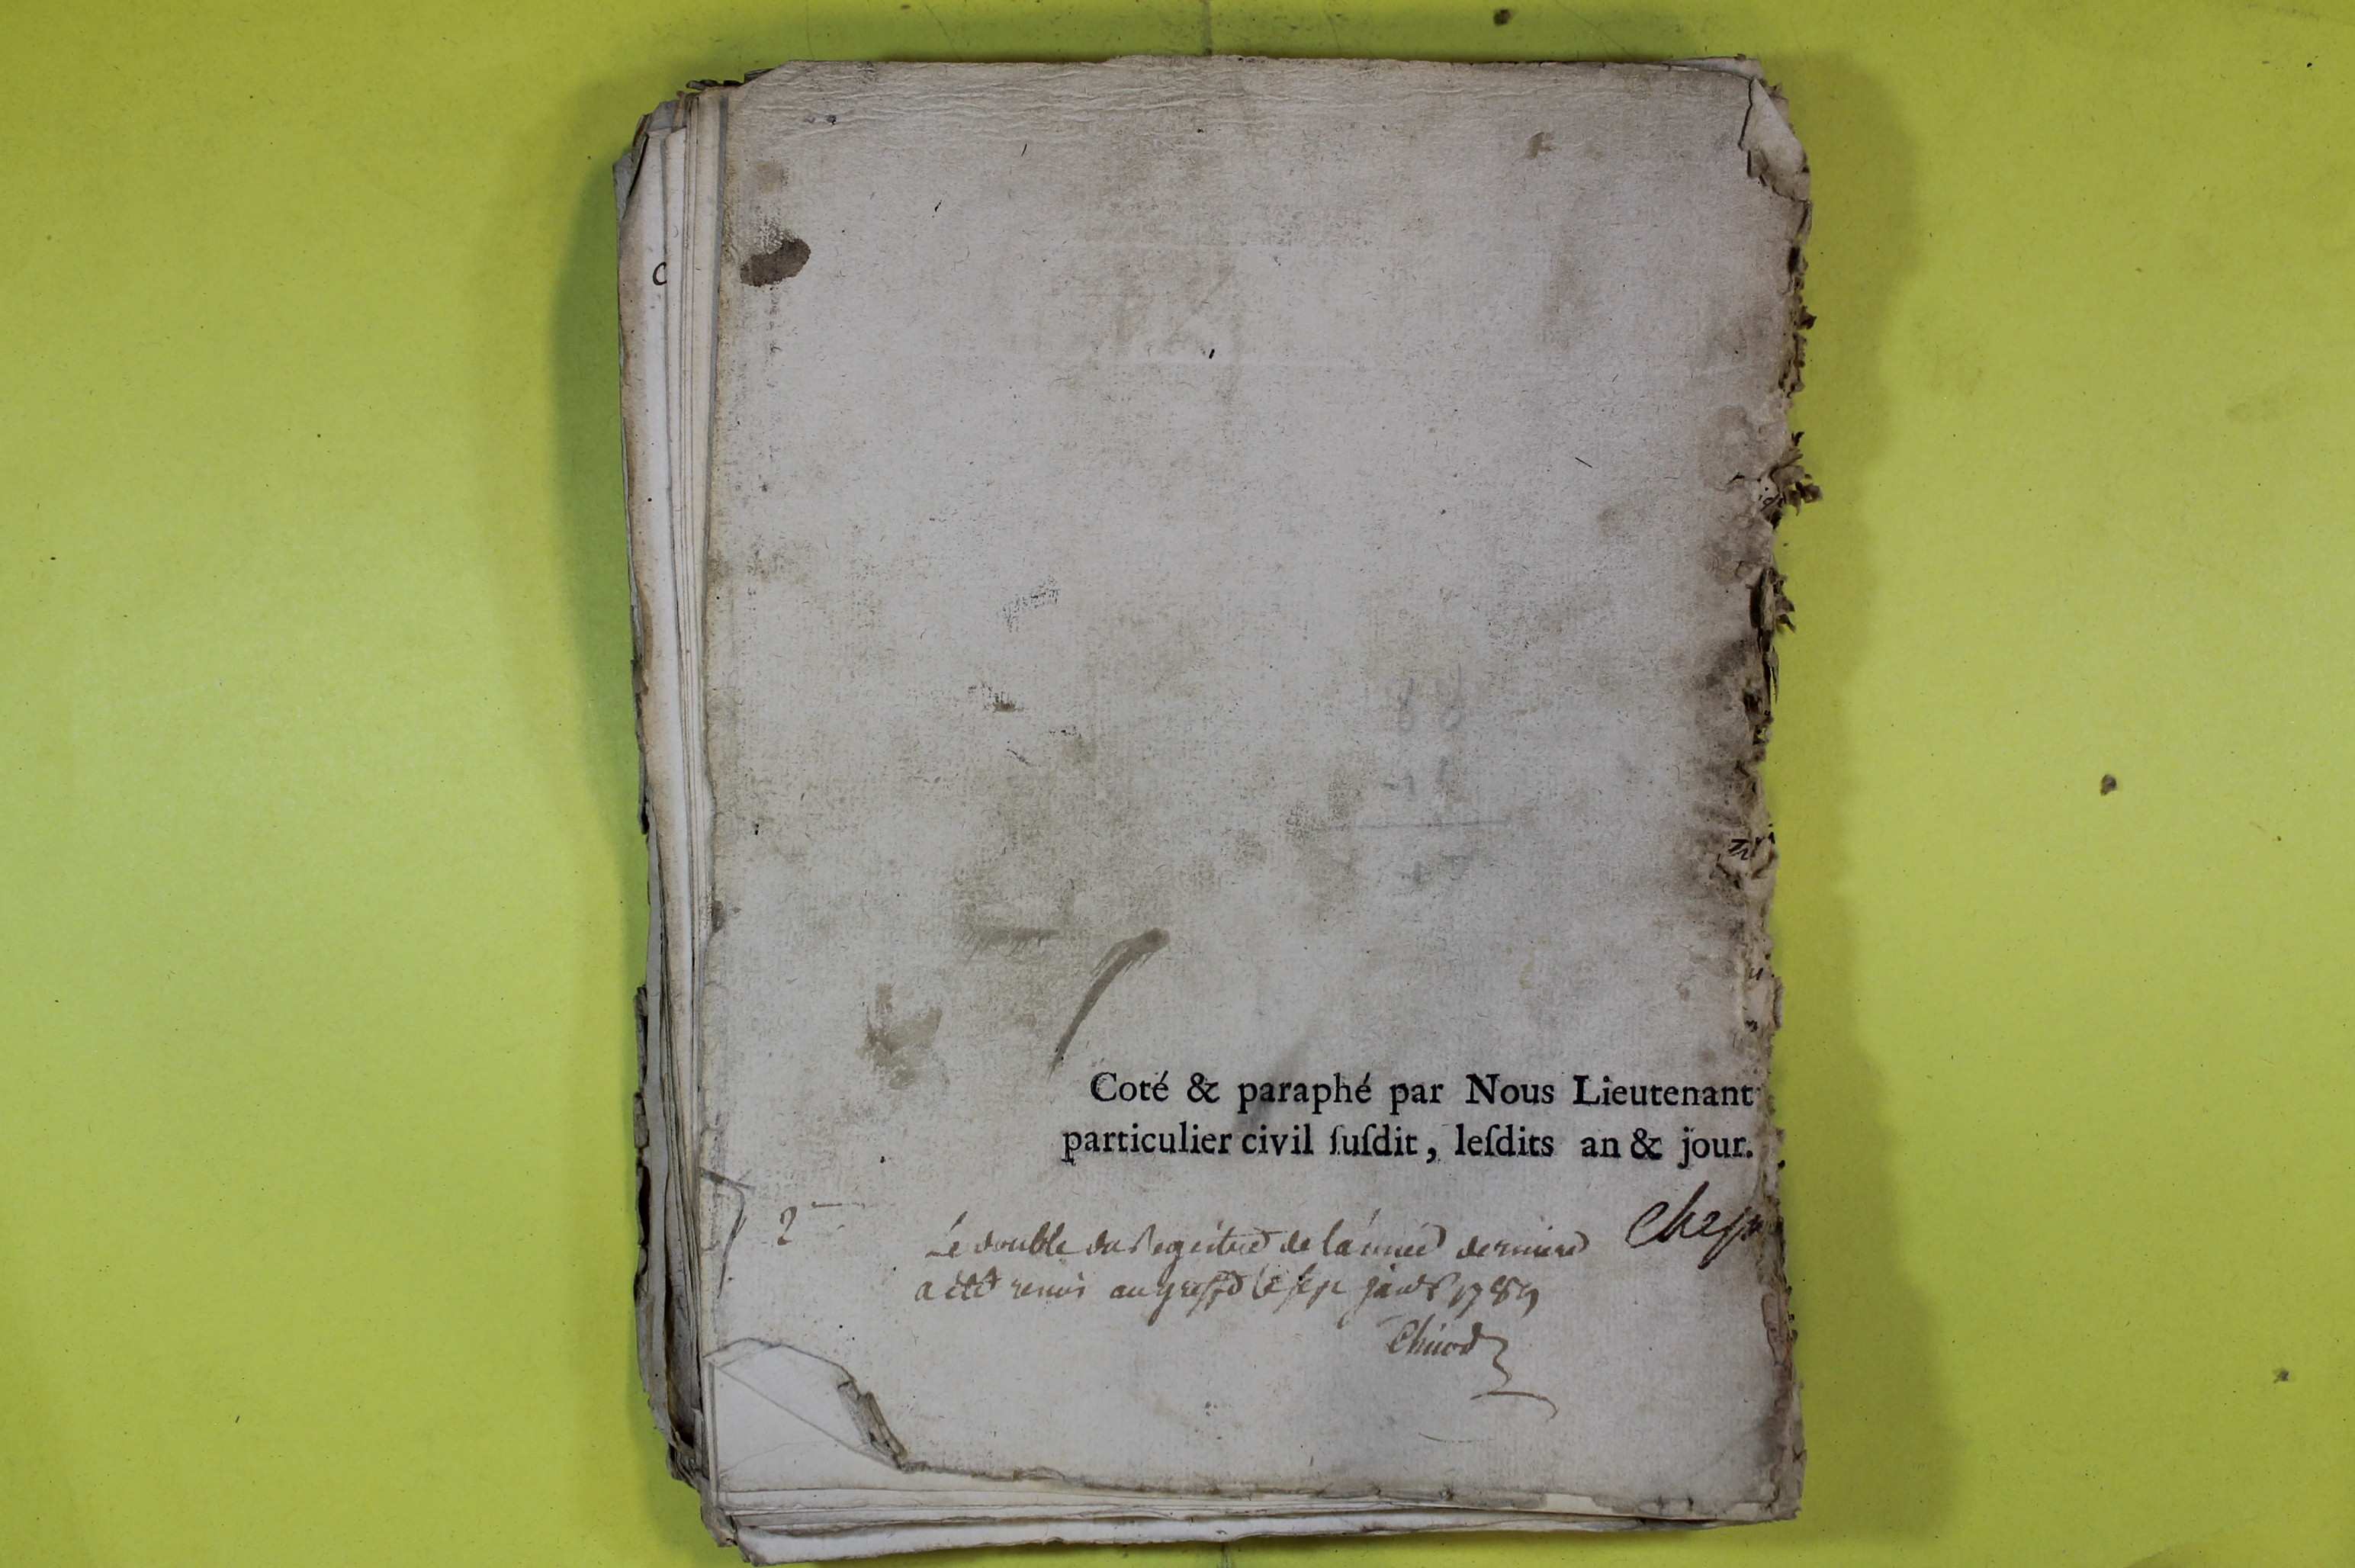 88
Coté & paraphé par Nous Lieutenant
particulier civil ſuſdit, leſdits an & jour.
2
Le double du Registre de l'année derniere
a été remis au greffe le sept janv 1789